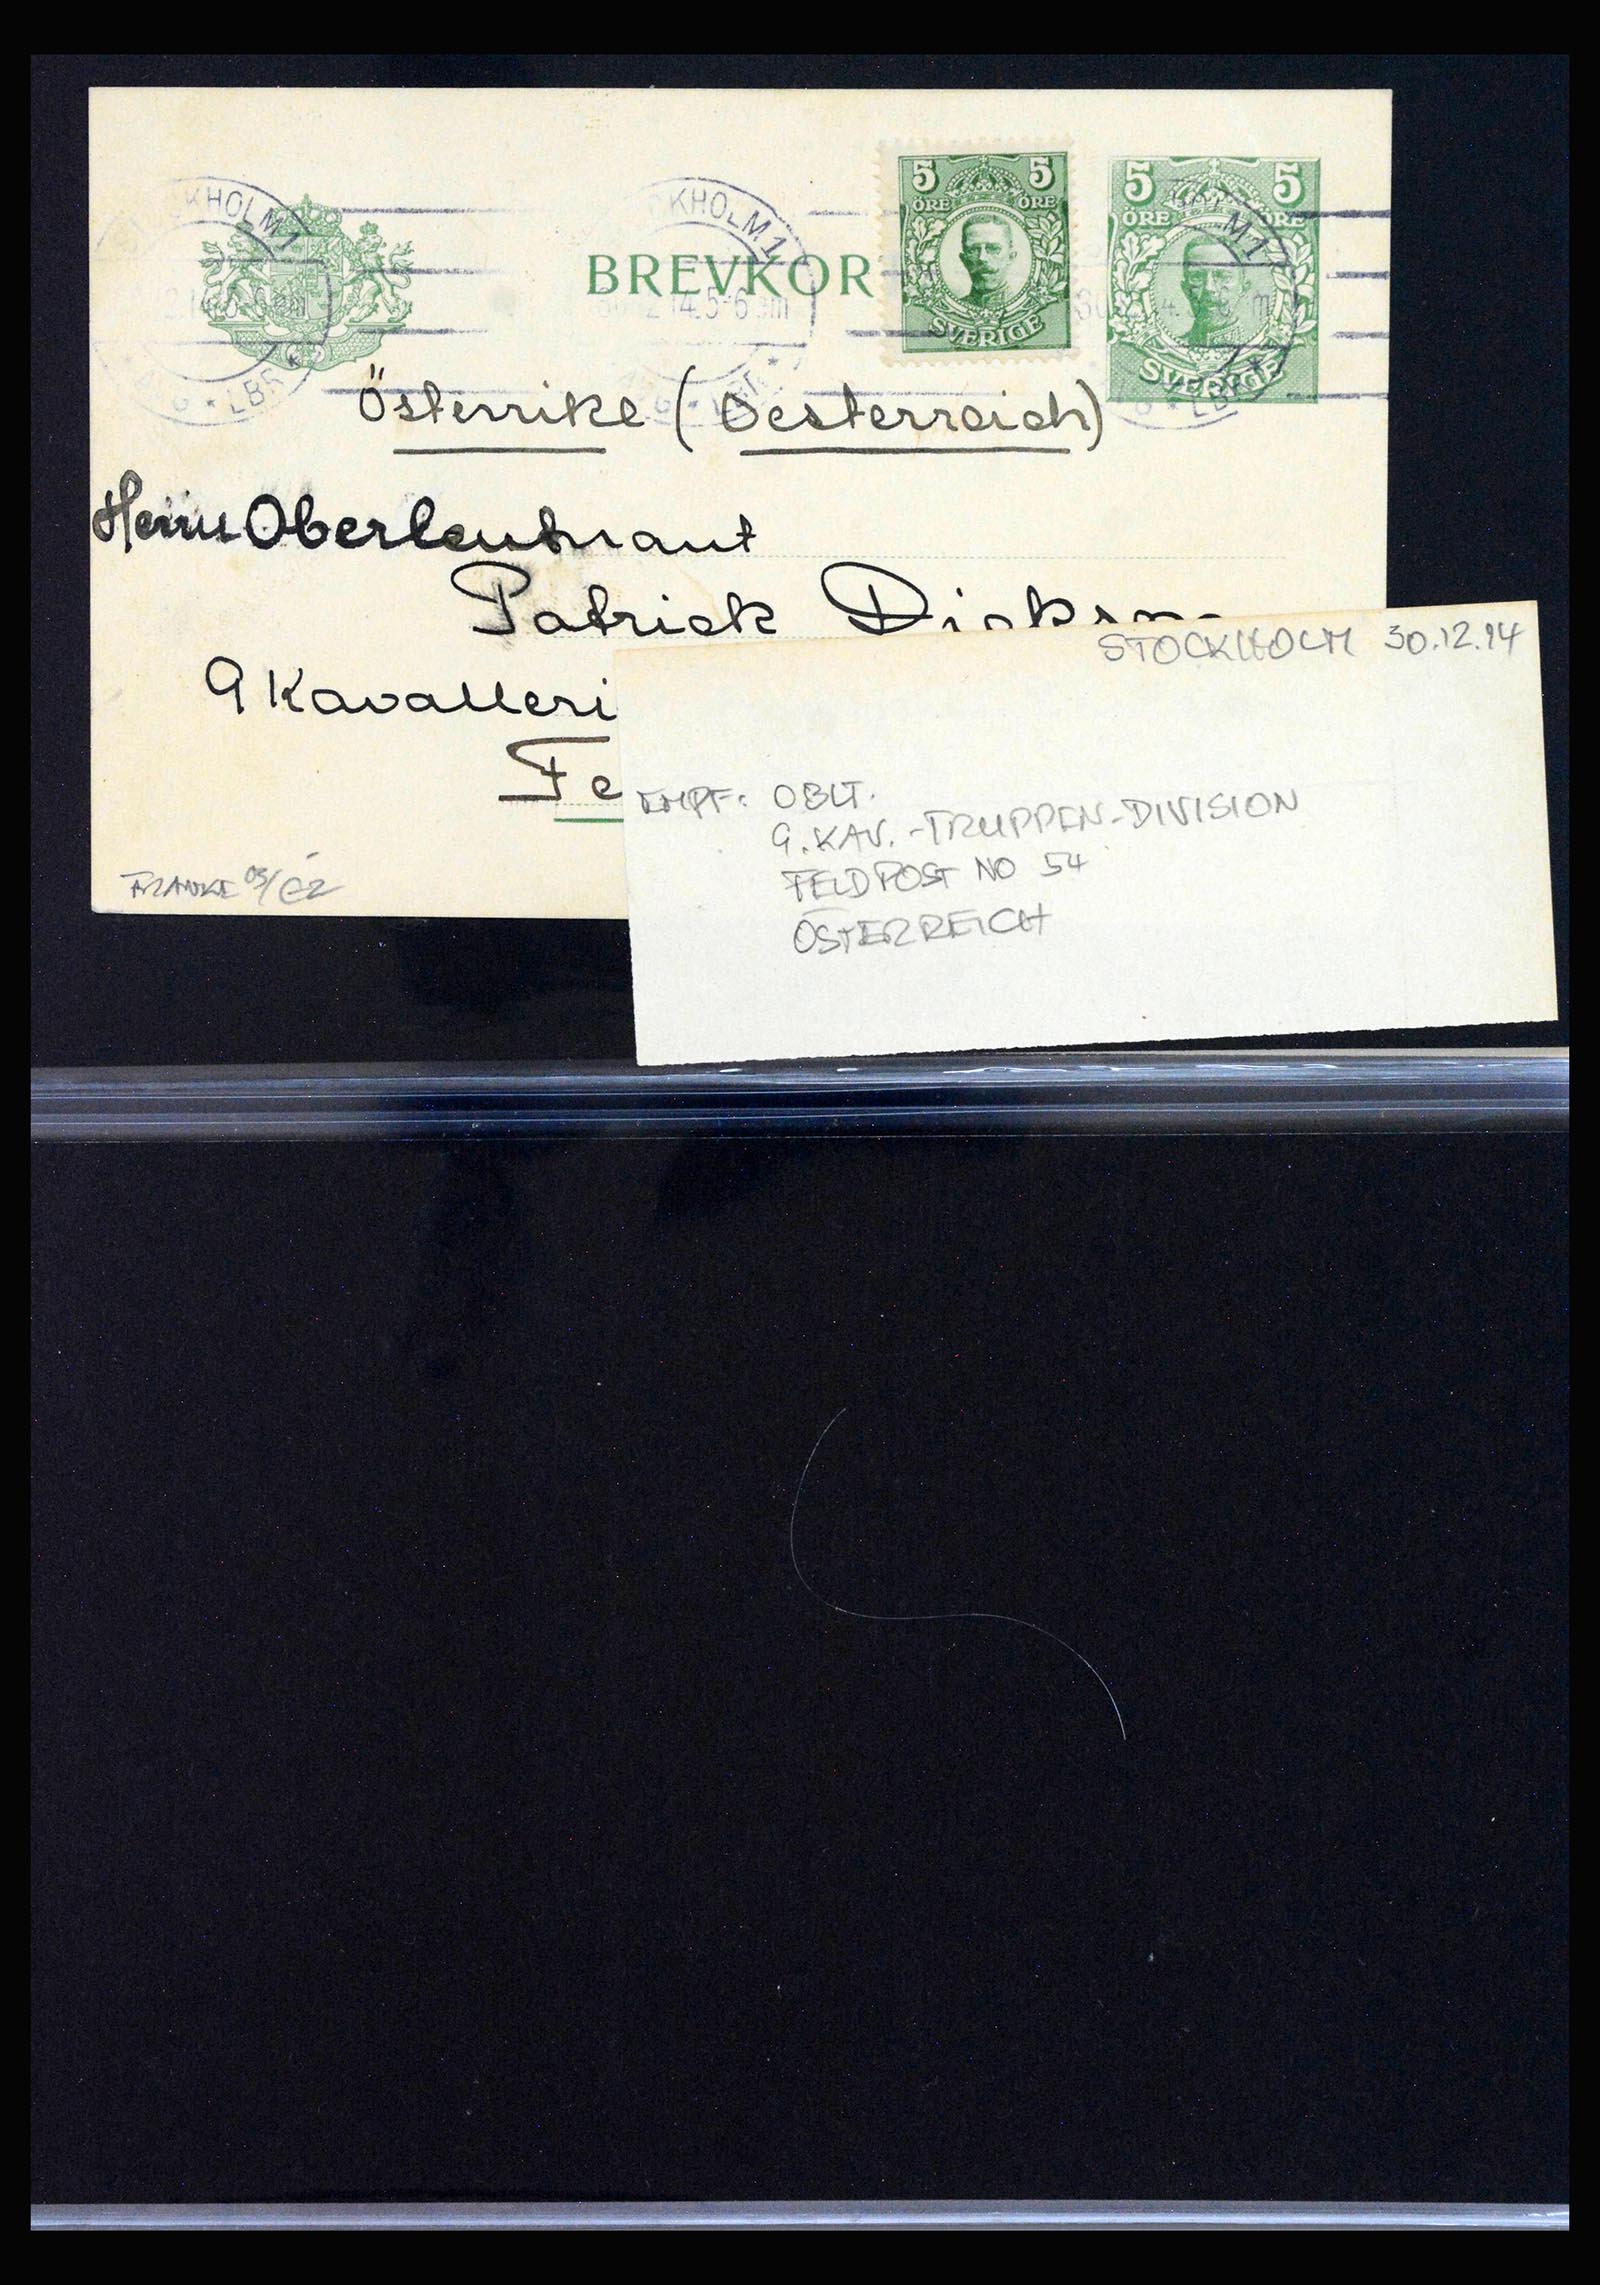 5 5
ÖRE ÖRE
SVERIGE
5 5
ÖRE ÖRE
SVERIGE
KHOLM 1
KHOLM 1
M 1
30.12.14.5-6
LBR
BREVKOR
Österrike (Oesterreich)
Herrn Oberleutnant
Patrick Dickson
9 Kavalleri
Fe
STOCKHOLM 30.12.14
EMPF: OBLT.
9. KAV.-TRUPPEN-DIVISION
FELDPOST NO 54
ÖSTERREICH
FRANKE 05/